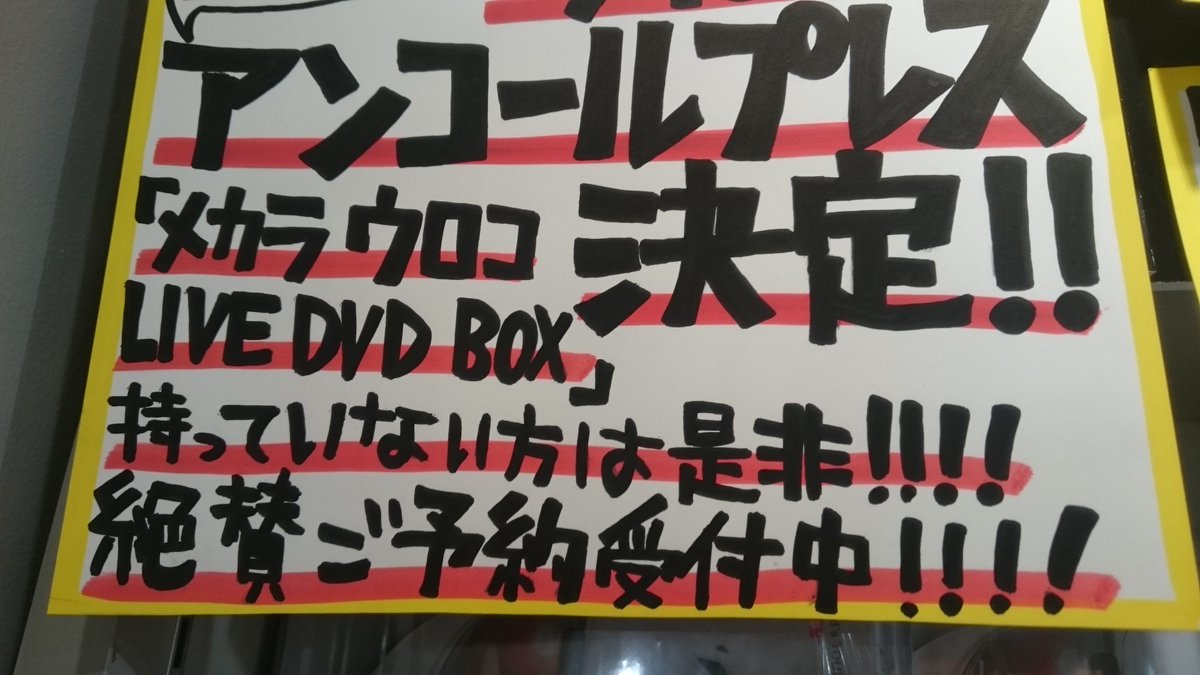 アンコールプレス
決定!!
「メカラ ウロコ
LIVE DVD BOX」
持っていない方は是非!!!!
絶賛ご予約受付中!!!!